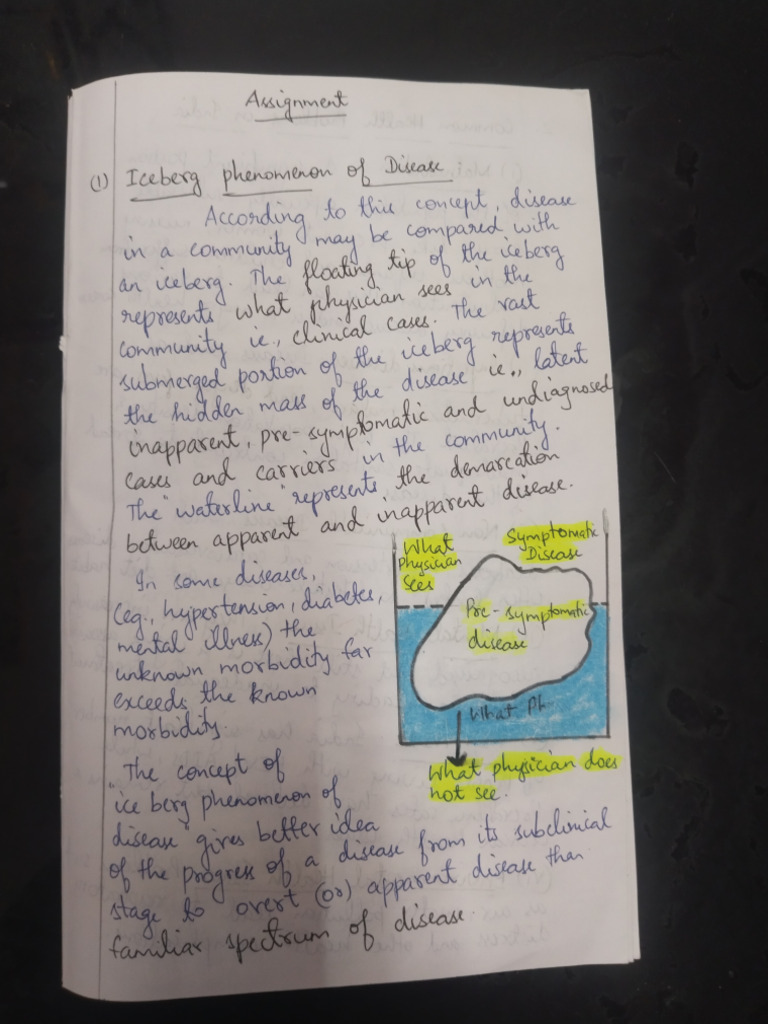 Assignment
(1) Iceberg phenomenon of Disease
According to this concept, disease
in a community may be compared with
an iceberg. The floating tip of the iceberg
represents what physician sees in the
community ie., clinical cases. The vast
submerged portion of the iceberg represents
the hidden mass of the disease ie., latent
inapparent, pre-symptomatic and undiagnosed
cases and carriers in the community.
The "waterline" represents the demarcation
between apparent and inapparent disease.
What
Physician
Sees
Symptomatic
Disease
Pre-symptomatic
disease
What Ph
What physician does
not see.
In some diseases,
(eg., hypertension, diabetes,
mental illness) the
unknown morbidity far
exceeds the known
morbidity.
The concept of
"ice berg phenomenon of
disease" gives better idea
of the progress of a disease from its subclinical
stage to overt (or) apparent disease than
familiar spectrum of disease.